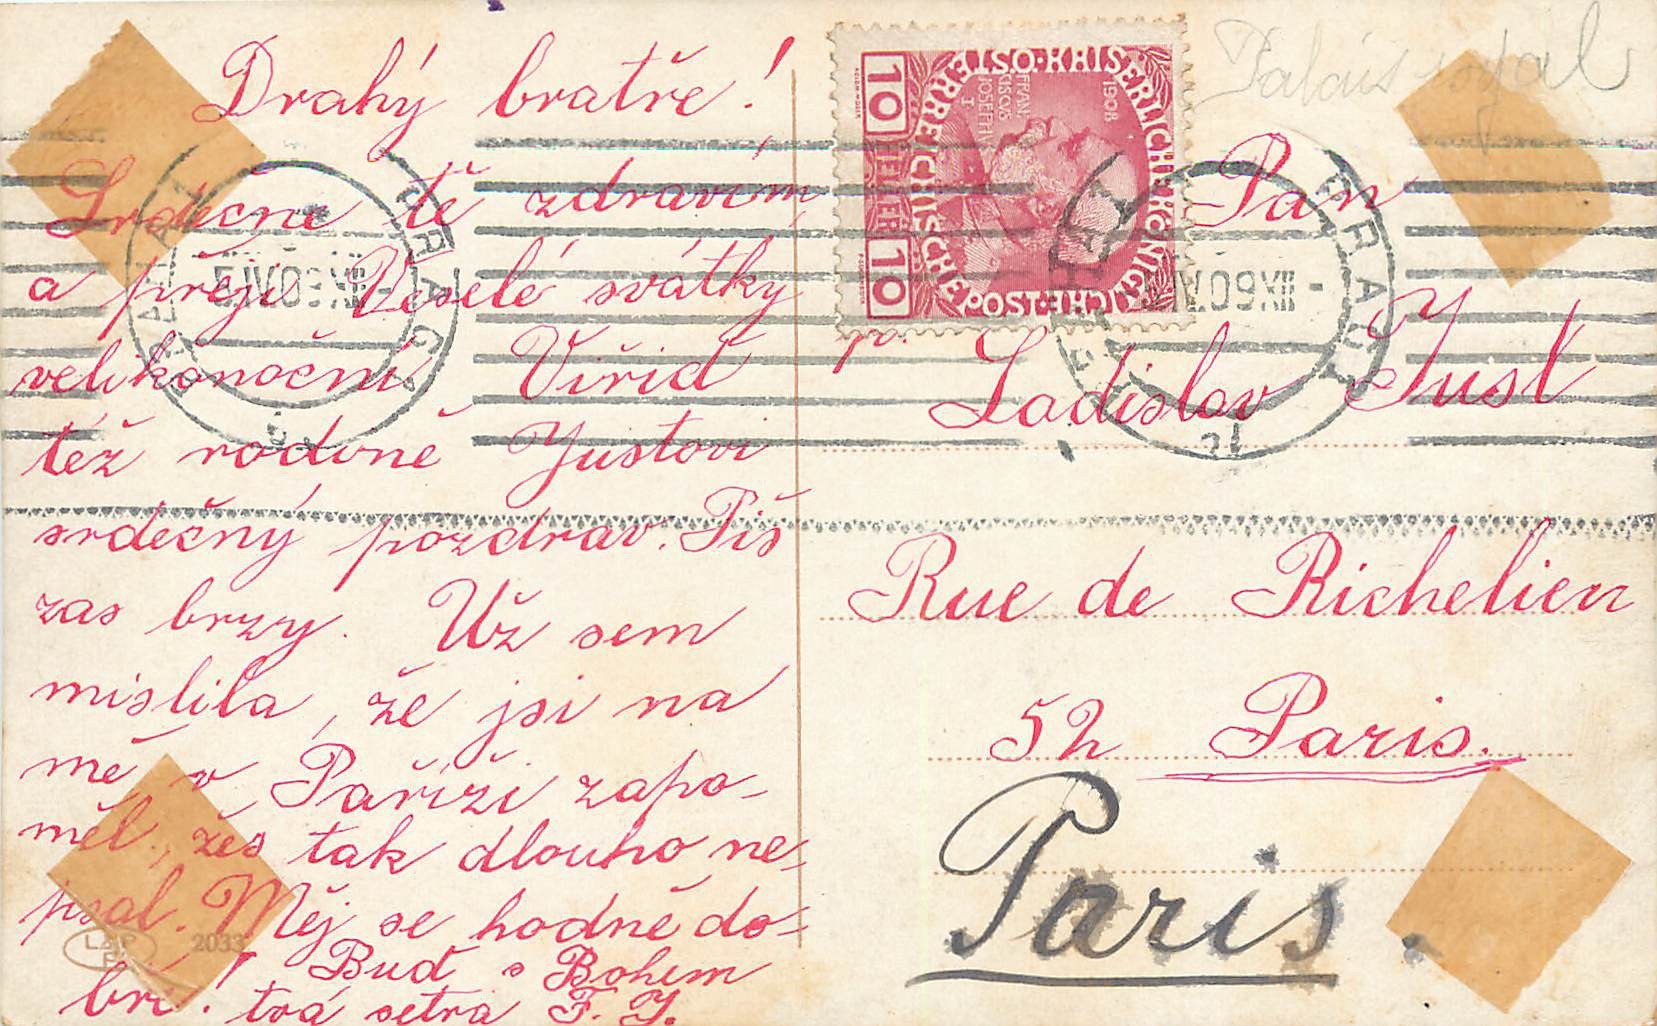 Drahý bratře!
Srdečně tě zdravím
a přeji Veselé svátky
velikonoční. Viřid
též rodině Justovi
srdečný pozdrav. Piš
zas brzy. Už sem
mislila, že jsi na
mě v Paříži zapo-
měl, žes tak dlouho ne-
psal. Měj se hodně do-
bře! Buď s Bohem
tvá setra F. J.
L&P
2033
KAISERLICHE KÖNIGLICHE ÖSTERREICHISCHE POST
FRANCISCVS JOSEPH I
1908
10 HELLER 10
PRAGA
IV.09 XII
PRAGA
IV.09 XII
Palais royal
Pan
p.
Ladislav Just
Rue de Richelieu
52 Paris.
Paris